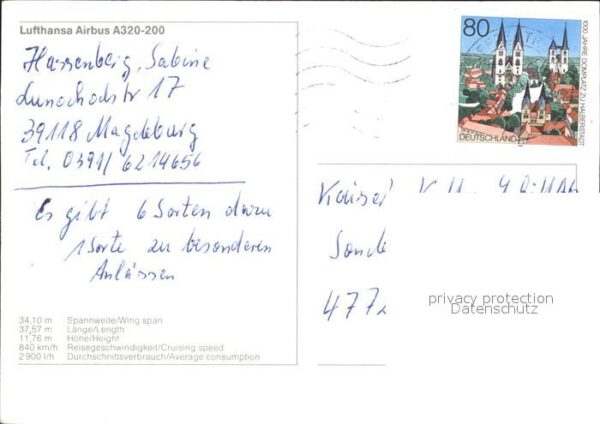 Lufthansa Airbus A320-200
Hassenberg, Sabine
Lunochodstr 17
39118 Magdeburg
Tel. 0391/6214656
Es gibt 6 Sorten dazu
1 Sorte zu besonderen
Anlässen
34,10 m Spannweite/Wing span
37,57 m Länge/Length
11,76 m Höhe/Height
840 km/h Reisegeschwindigkeit/Cruising speed
2900 l/h Durchschnittsverbrauch/Average consumption
80
1000 JAHRE DOMPLATZ ZU HALBERSTADT
DEUTSCHLAND
Kaiser
Sonde
477
privacy protection
Datenschutz